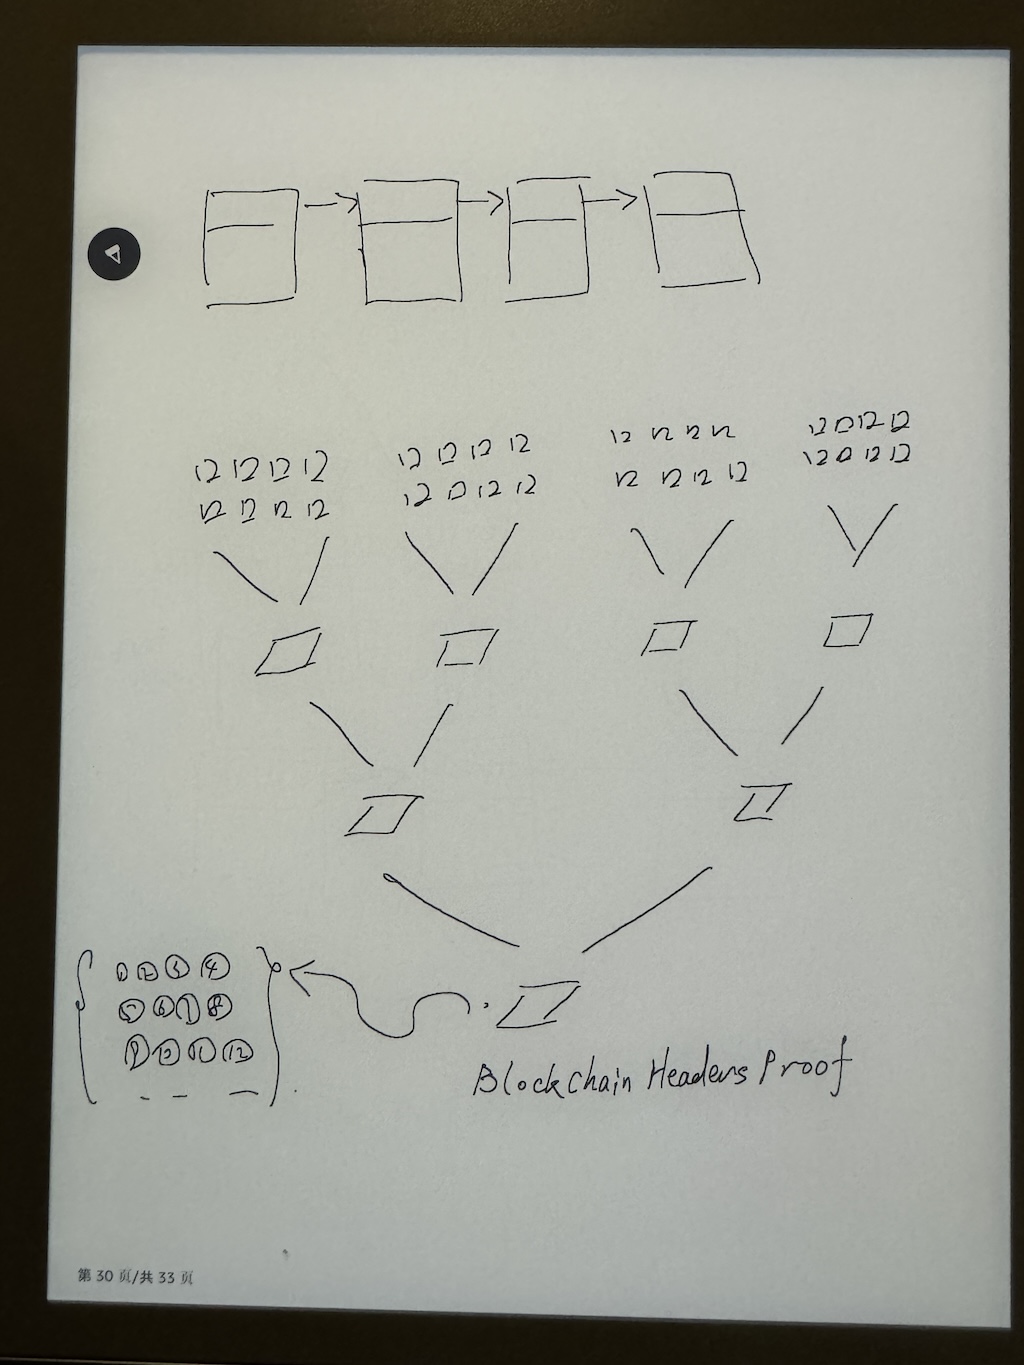 12 12 12 12
12 12 12 12
12 12 12 12
12 12 12 12
12 12 12 12
12 12 12 12
12 12 12 12
12 12 12 12
① ② ③ ④
⑤ ⑥ ⑦ ⑧
⑨ ⑩ ⑪ ⑫
Blockchain Headers Proof
第 30 页/共 33 页